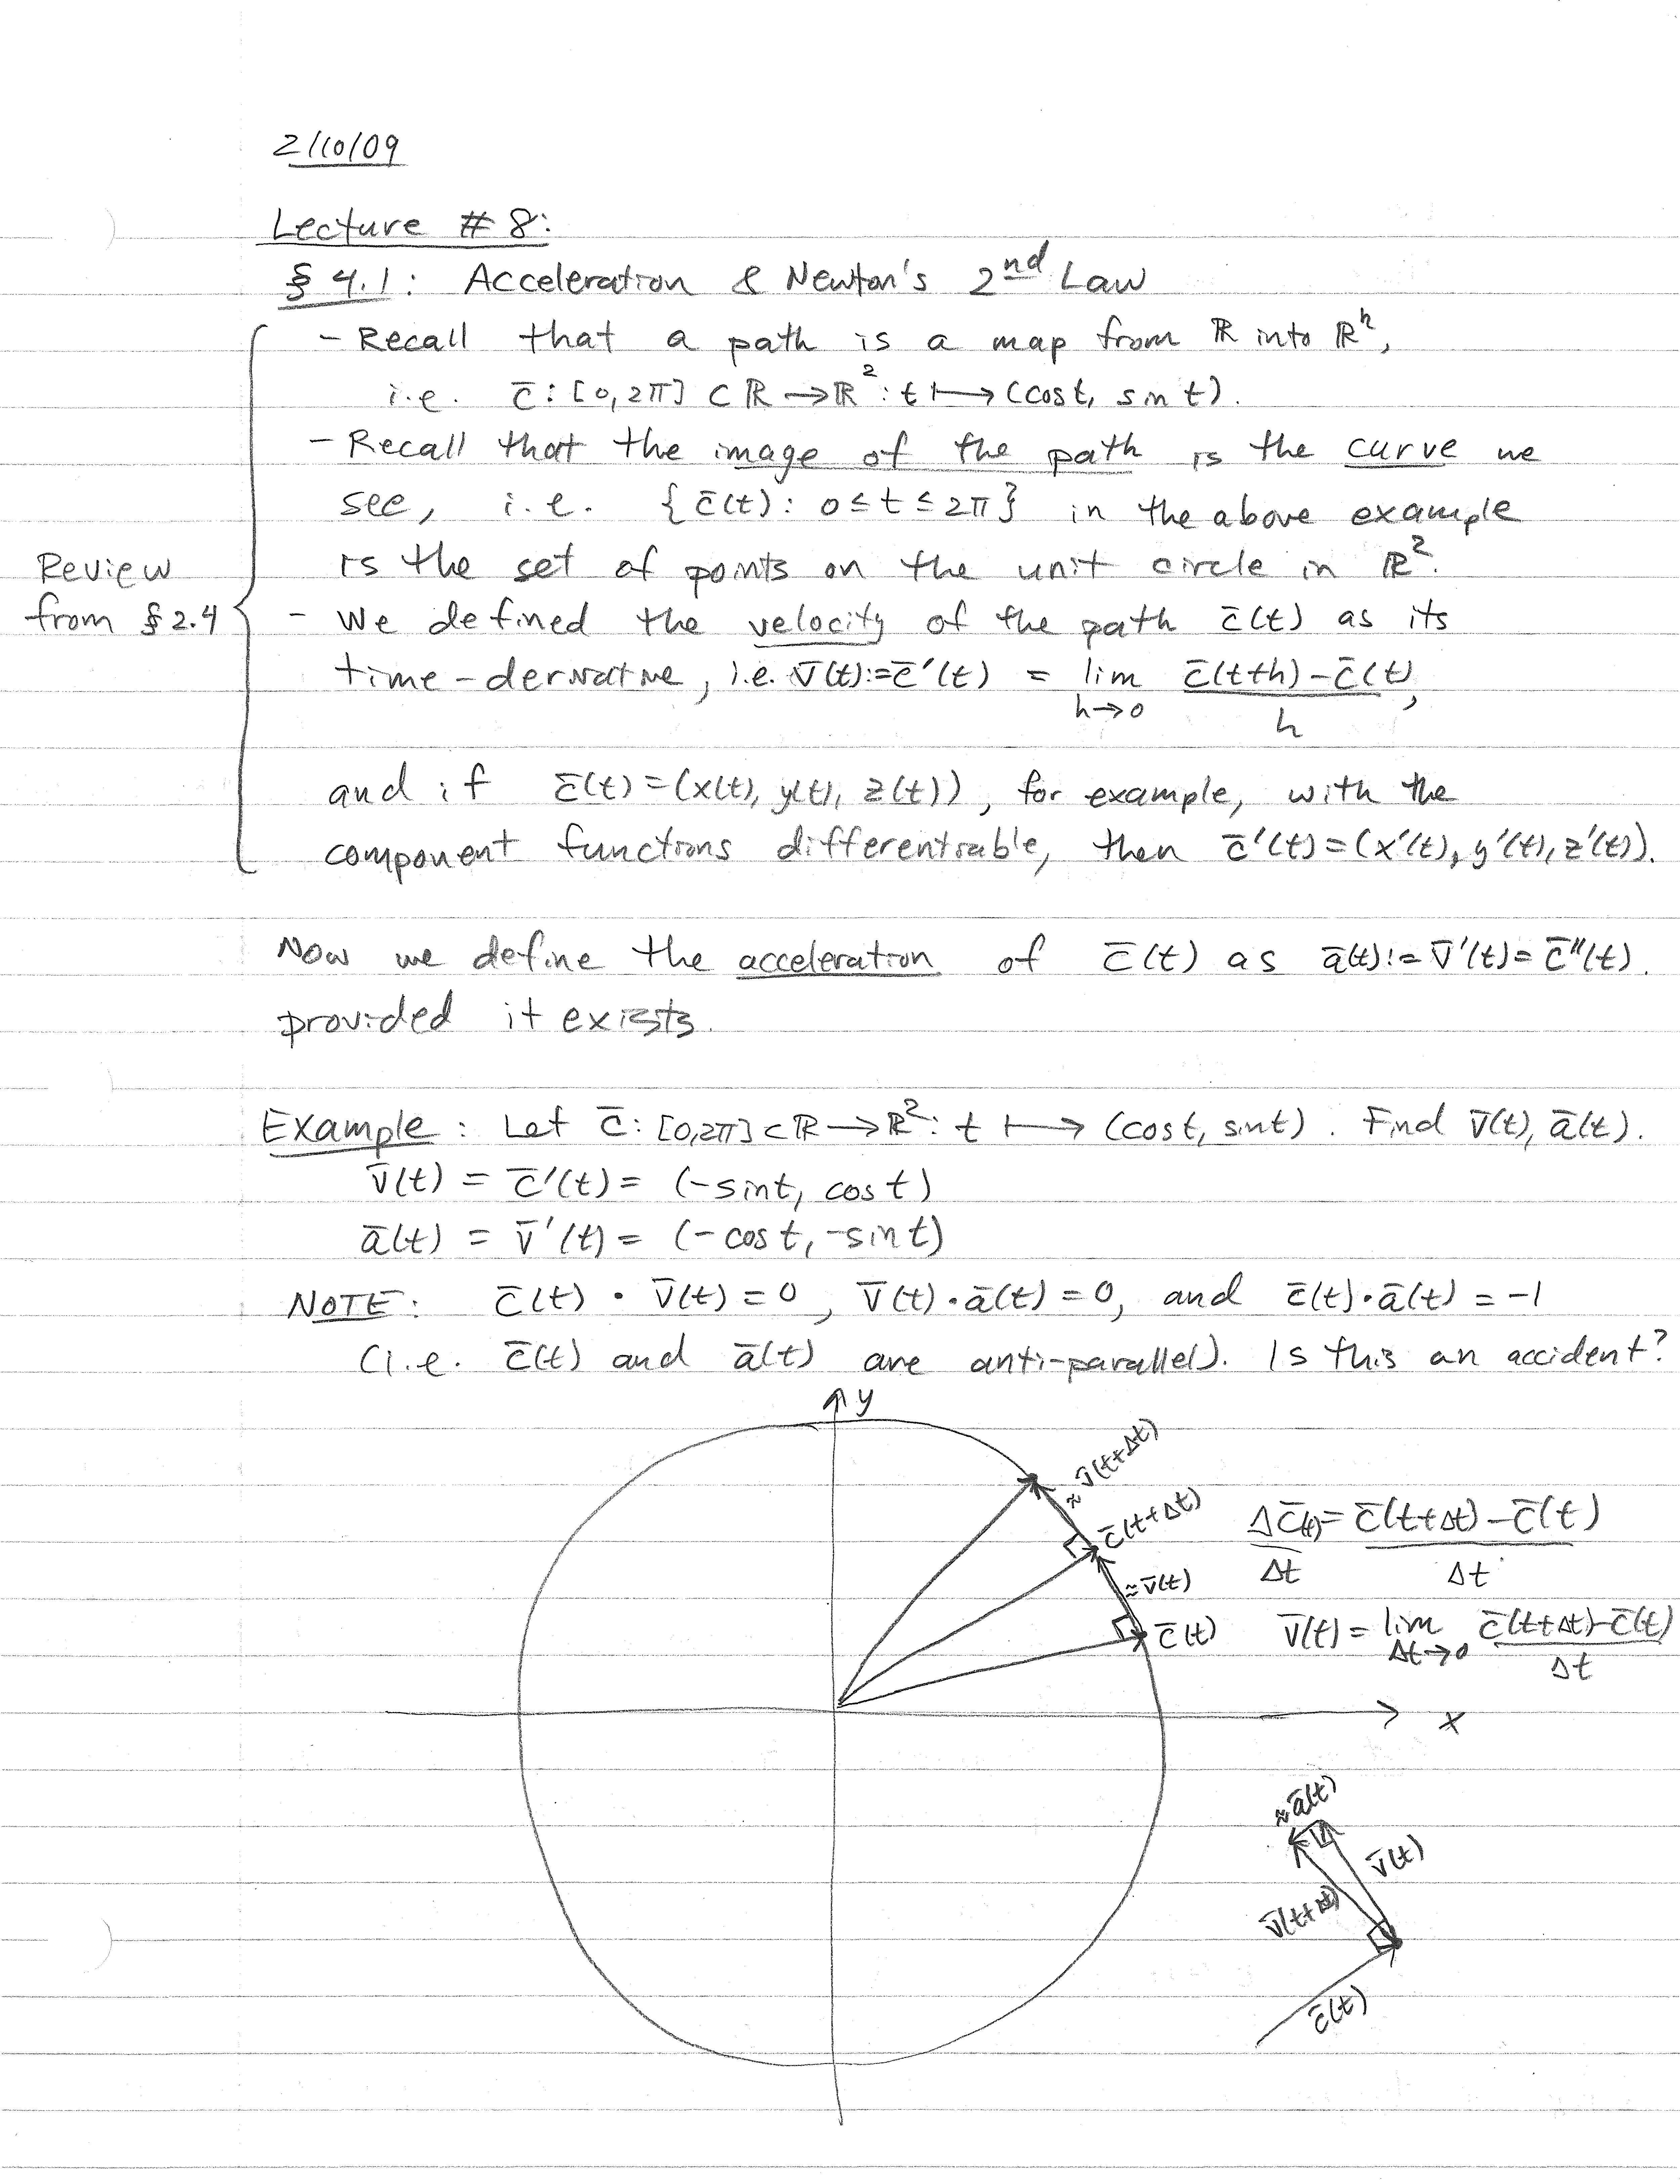 2/10/09
Lecture # 8:
§ 4.1: Acceleration & Newton's 2nd Law
- Recall that a path is a map from ℝ into ℝⁿ,
i.e. c̄: [0,2π] ⊂ ℝ → ℝ²: t ↦ (cos t, sin t).
- Recall that the image of the path is the curve we
see, i.e. {c̄(t): 0 ≤ t ≤ 2π} in the above example
is the set of points on the unit circle in ℝ².
Review
from § 2.4
- We defined the velocity of the path c̄(t) as its
time-derivative, i.e. v̄(t):=c̄'(t) = lim h→0 (c̄(t+h)-c̄(t))/h,
and if c̄(t)=(x(t), y(t), z(t)), for example, with the
component functions differentiable, then c̄'(t)=(x'(t), y'(t), z'(t)).
Now we define the acceleration of c̄(t) as ā(t):=v̄'(t)=c̄''(t).
provided it exists.
Example: Let c̄: [0,2π] ⊂ ℝ → ℝ²: t ↦ (cos t, sin t). Find v̄(t), ā(t).
v̄(t) = c̄'(t) = (-sin t, cos t)
ā(t) = v̄'(t) = (-cos t, -sin t)
NOTE: c̄(t) · v̄(t) = 0, v̄(t) · ā(t) = 0, and c̄(t) · ā(t) = -1
(i.e. c̄(t) and ā(t) are anti-parallel). Is this an accident?
y
≈ v̄(t+Δt)
c̄(t+Δt)
Δc̄(t)/Δt = (c̄(t+Δt)-c̄(t))/Δt
≈ v̄(t)
c̄(t)
v̄(t) = lim Δt→0 (c̄(t+Δt)-c̄(t))/Δt
x
≈ ā(t)
v̄(t)
v̄(t+Δt)
c̄(t)